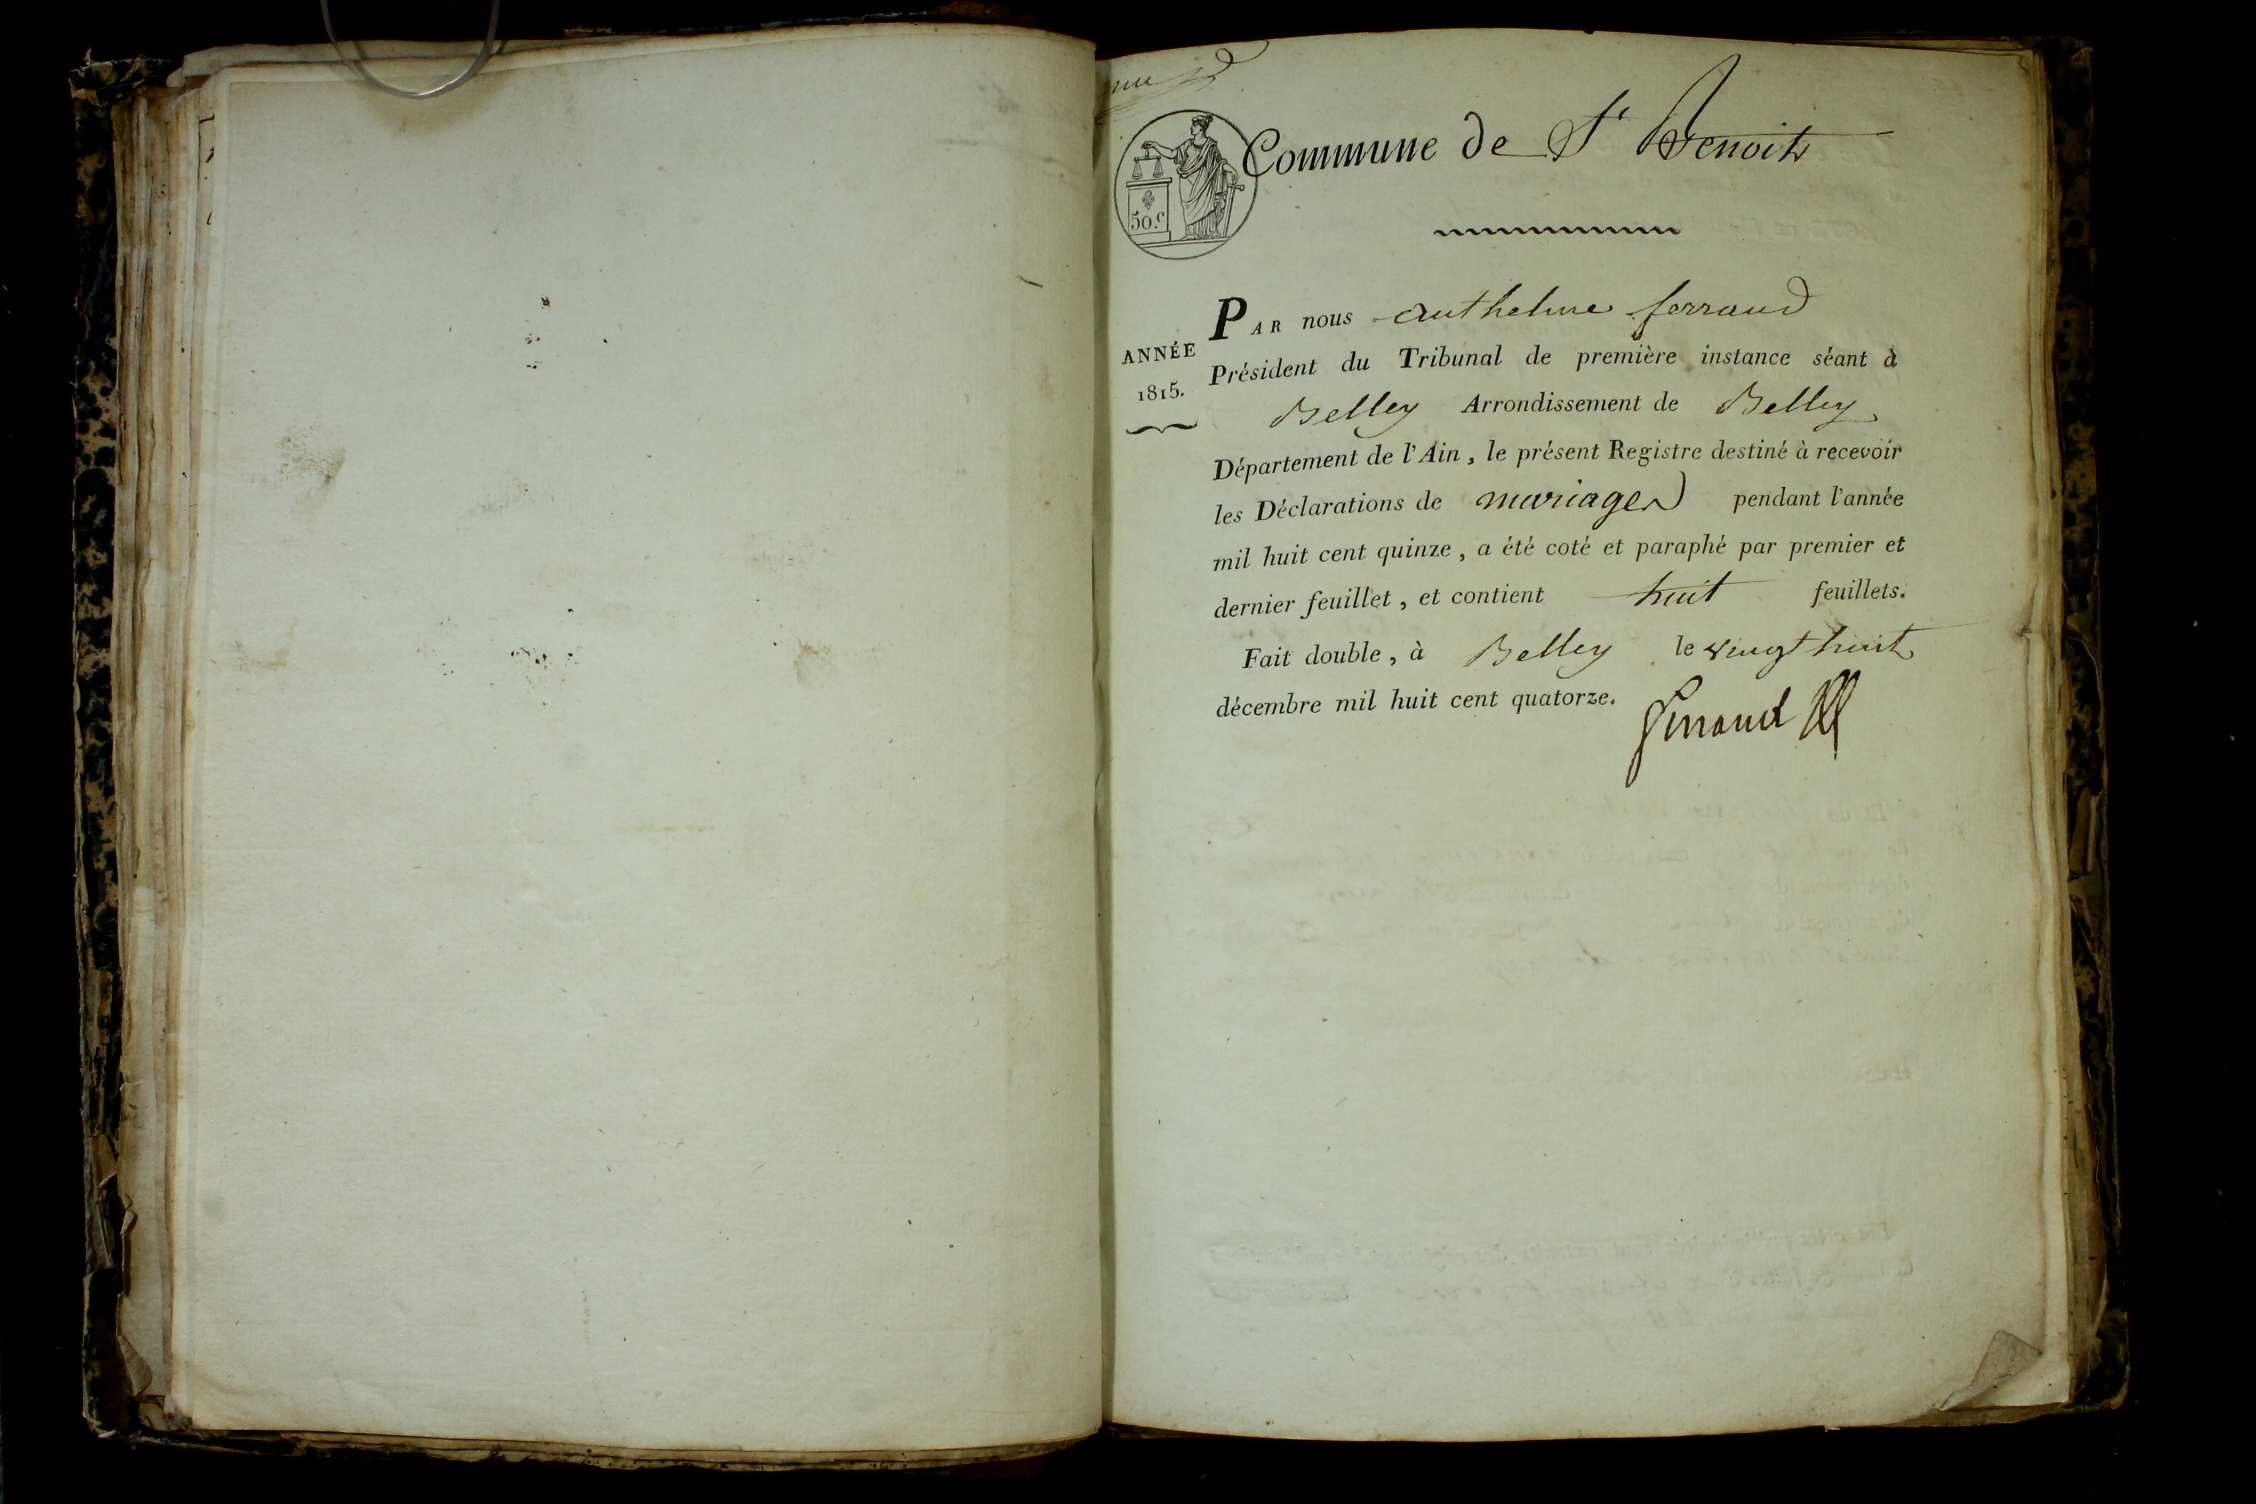 Commune de St Benoit
50.c
PAR nous anthelme ferrand
ANNÉE
1815.
Président du Tribunal de première instance séant à
Belley Arrondissement de Belley
Département de l'Ain, le présent Registre destiné à recevoir
les Déclarations de mariages pendant l'année
mil huit cent quinze, a été coté et paraphé par premier et
dernier feuillet, et contient huit feuillets.
Fait double, à Belley le vingt huit
décembre mil huit cent quatorze.
ferrand